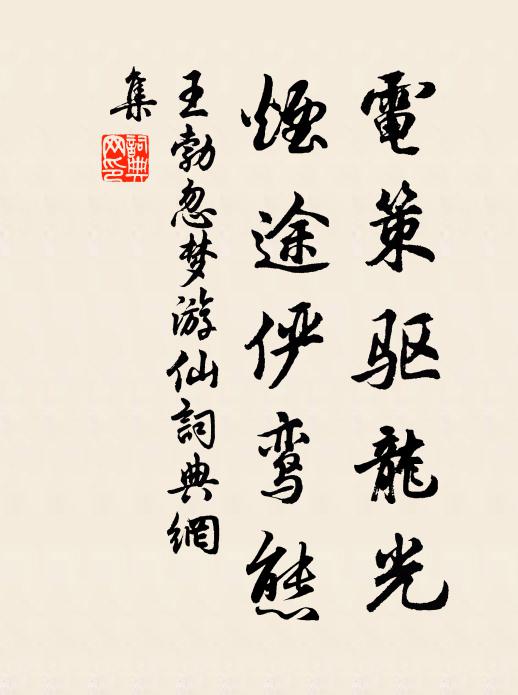 電策驱龍光
煙途俨鸾態
王勃忽梦游仙詞典網
集
詞典網印